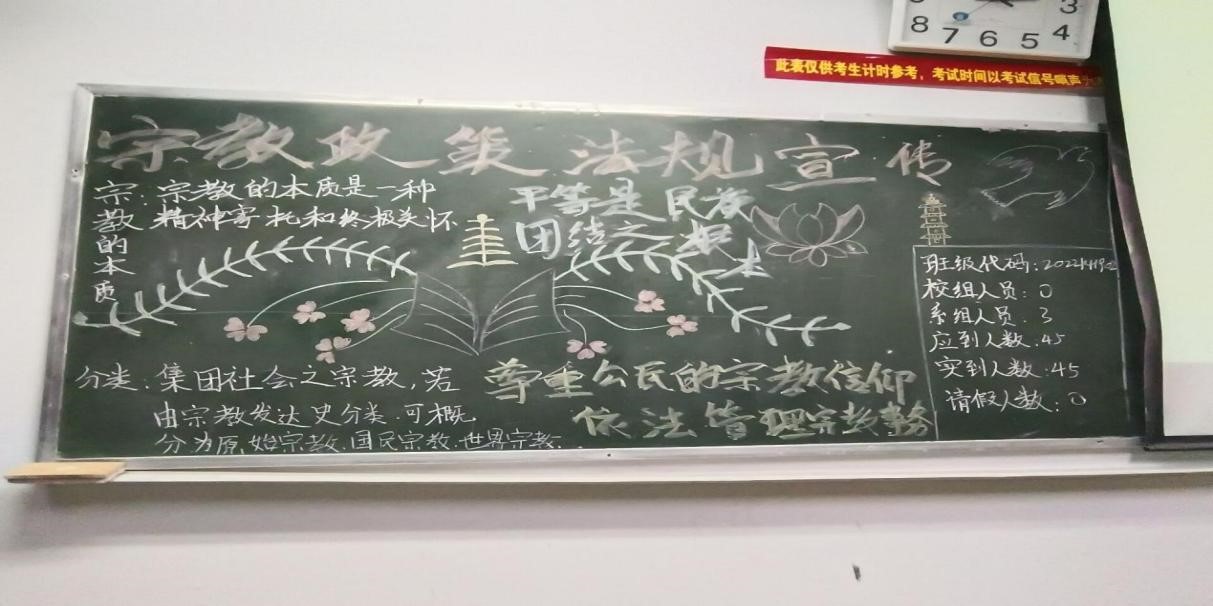 3
8 7 6 5 4
此表仅供考生计时参考，考试时间以考试信号
宗教政策法规宣传
宗教的本质
：宗教的本质是一种
精神寄托和终极关怀
平等是民族
团结之根本
分类：集团社会之宗教，若
由宗教发达史分类.可概
分为原始宗教.国民宗教.世界宗教...
尊重公民的宗教信仰
依法管理宗教事务
班级代码：
校组人员：0
系组人员：3
应到人数：45
实到人数：45
请假人数：0